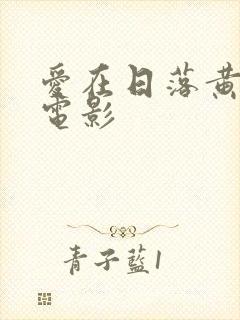 愛在日落黃
電影
青子藍1